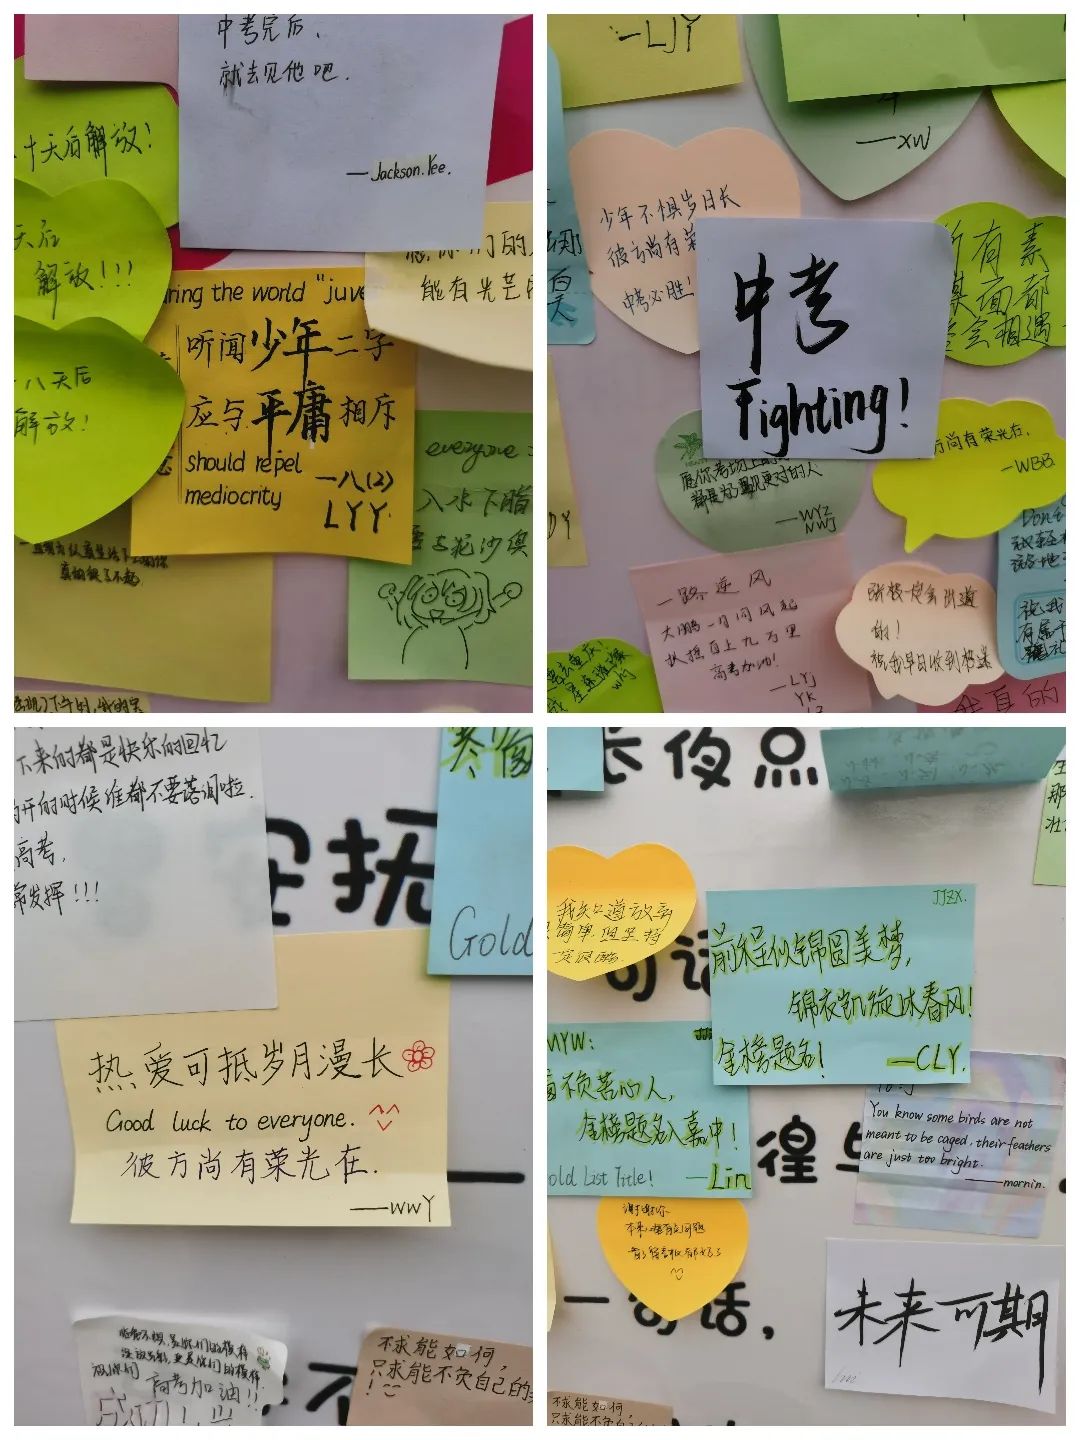 中考完后，
就去见他吧．
—Jackson.Yee.
十天后解放！
天后
解放！！！
八天后
解放！
ring the world "juve
听闻少年二字
应与平庸相斥
should repel
mediocrity
一八(2)
LYY
能有光芒
everyone
入水下脂
真的很了不起
—LJY
—XW
少年不惧岁月长
彼方尚有荣
中考必胜！
中考
Fighting!
所有素
会相遇
方尚有荣光在．
—WBB
愿你考场上的
都是为了遇见更对的人
—WYZ
NWJ
DY
一路逆风
大鹏一日同风起
扶摇直上九万里
高考加油！
—LYJ
YK
所想一定会出道
的！
祝我早日收到
Don
祝我
有属于
真的
下来的都是快乐的回忆
开的时候谁都不要落泪啦．
高考，
常发挥！！！
安抚
Gold
热爱可抵岁月漫长
Good luck to everyone.
彼方尚有荣光在．
—WWY
高考加油！！
不求能如何，
只求能不负自己的
长夜点
那
我知道放弃
简单，但坚持
定很酷．
句话
JJZX.
前程似锦圆美梦，
锦衣凯旋沐春风！
金榜题名！ —CLY.
MYW:
不负苦心人，
金榜题名入嘉中！
old List Title! —Lin
徨与
You know some birds are not
meant to be caged, their feathers
are just too bright.
—mornin.
谢谢你
一句话，
未来可期
不求能如何，
只求能不负自己